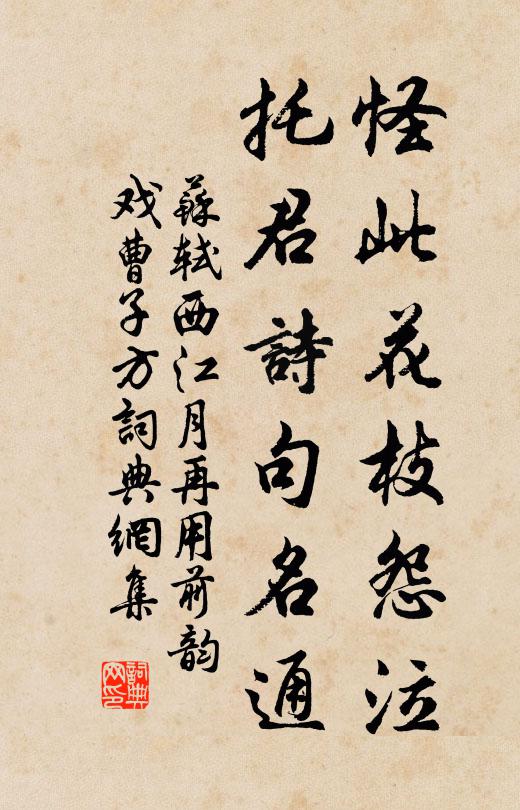 怪此花枝怨泣
托君詩句名通
蘇軾西江月再用前韵
戏曹子方詞典網集
詞典网印